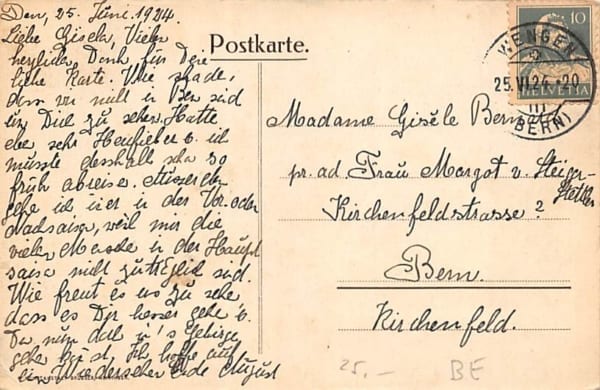 Den, 25. Juni. 1924
Liebe Gisela, Vielen
herzlichen Dank für Deine
liebe Karte. Wie schade,
dass wir nicht in Bern sind
um Dich zu sehen. Hatte
eben sehr Heufieber u. ich
musste desshalb schon so
früh abreisen. Ausserdem
gehe ich hier in der Vor- oder
Nachsaison, weil mir die
vielen Menschen in der Haupt
saison nicht zuträglich sind.
Wie freut es uns zu sehen
dass es Dir besser geht u.
Du nun auch in's Gebirge
gehen Ich hoffe auf
ein Wiedersehen Ende August
Postkarte.
10
HELVETIA
WENGEN
25.VI.24.-20
(BERN)
Madame Gisèle Bern
pr. ad Frau Margot v. Steiger-
Stettler
Kirchenfeldstrasse 2
Bern.
Kirchenfeld.
25.-
BE